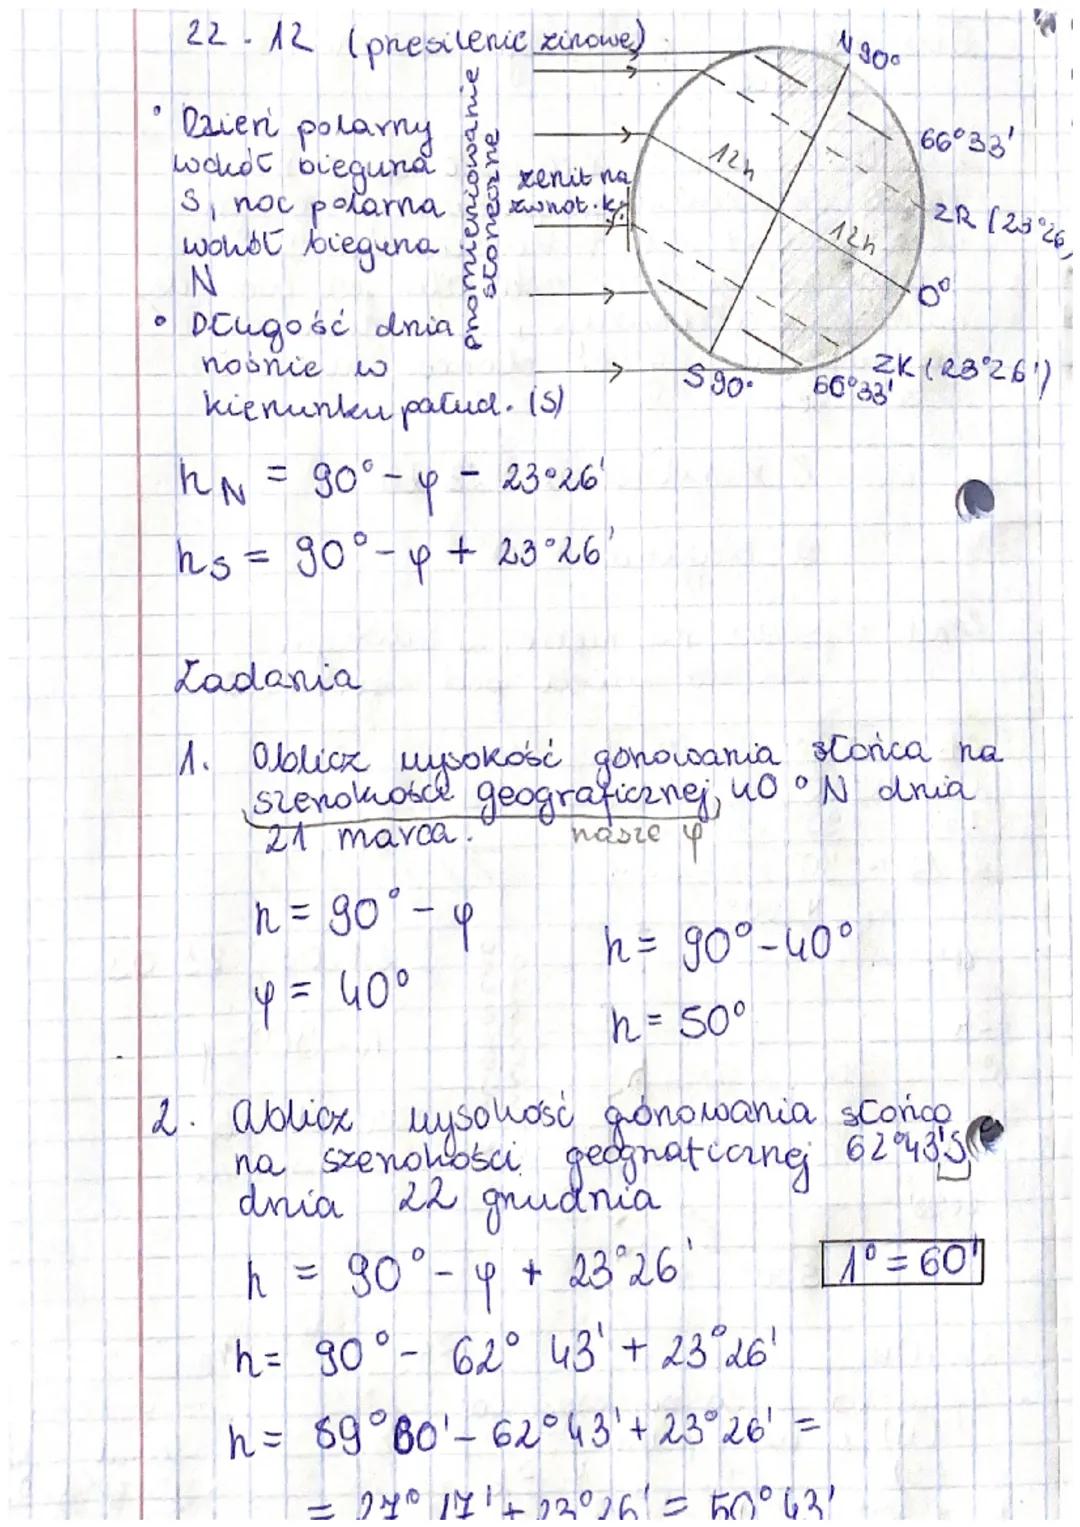 22.12 (przesilenie zimowe)
• Dzień polarny
wokół bieguna
S, noc polarna
wokół bieguna
N
• Długość dnia
rośnie w
kierunku połud. (S)
promieniowanie
słoneczne
zenit na
zwrot.k.
N 90°
66°33'
ZR (23°26,
12h
12h
0°
ZK (23°26')
66°33'
S 90°
hN = 90° - φ - 23°26'
hS = 90° - φ + 23°26'
Zadania
1. Oblicz wysokość górowania słońca na
szerokości geograficznej 40°N dnia
21 marca. nasze φ
h = 90° - φ
φ = 40°
h = 90° - 40°
h = 50°
2. Oblicz wysokość górowania słońca
na szerokości geograficznej 62°43'S
dnia 22 grudnia
h = 90° - φ + 23°26'
1° = 60'
h = 90° - 62° 43' + 23°26'
h = 89°60' - 62°43' + 23°26' =
= 27°17' + 23°26' = 50°43'